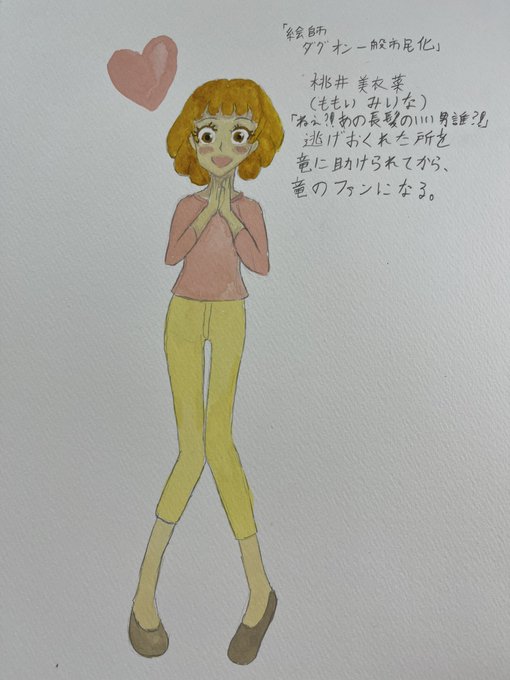 「絵師
ダグオン一般市民化」
桃井 美衣菜
(ももい みいな)
「ねぇ!!あの長髪のいい男誰?!」
逃げおくれた所を
竜に助けられてから、
竜のファンになる。